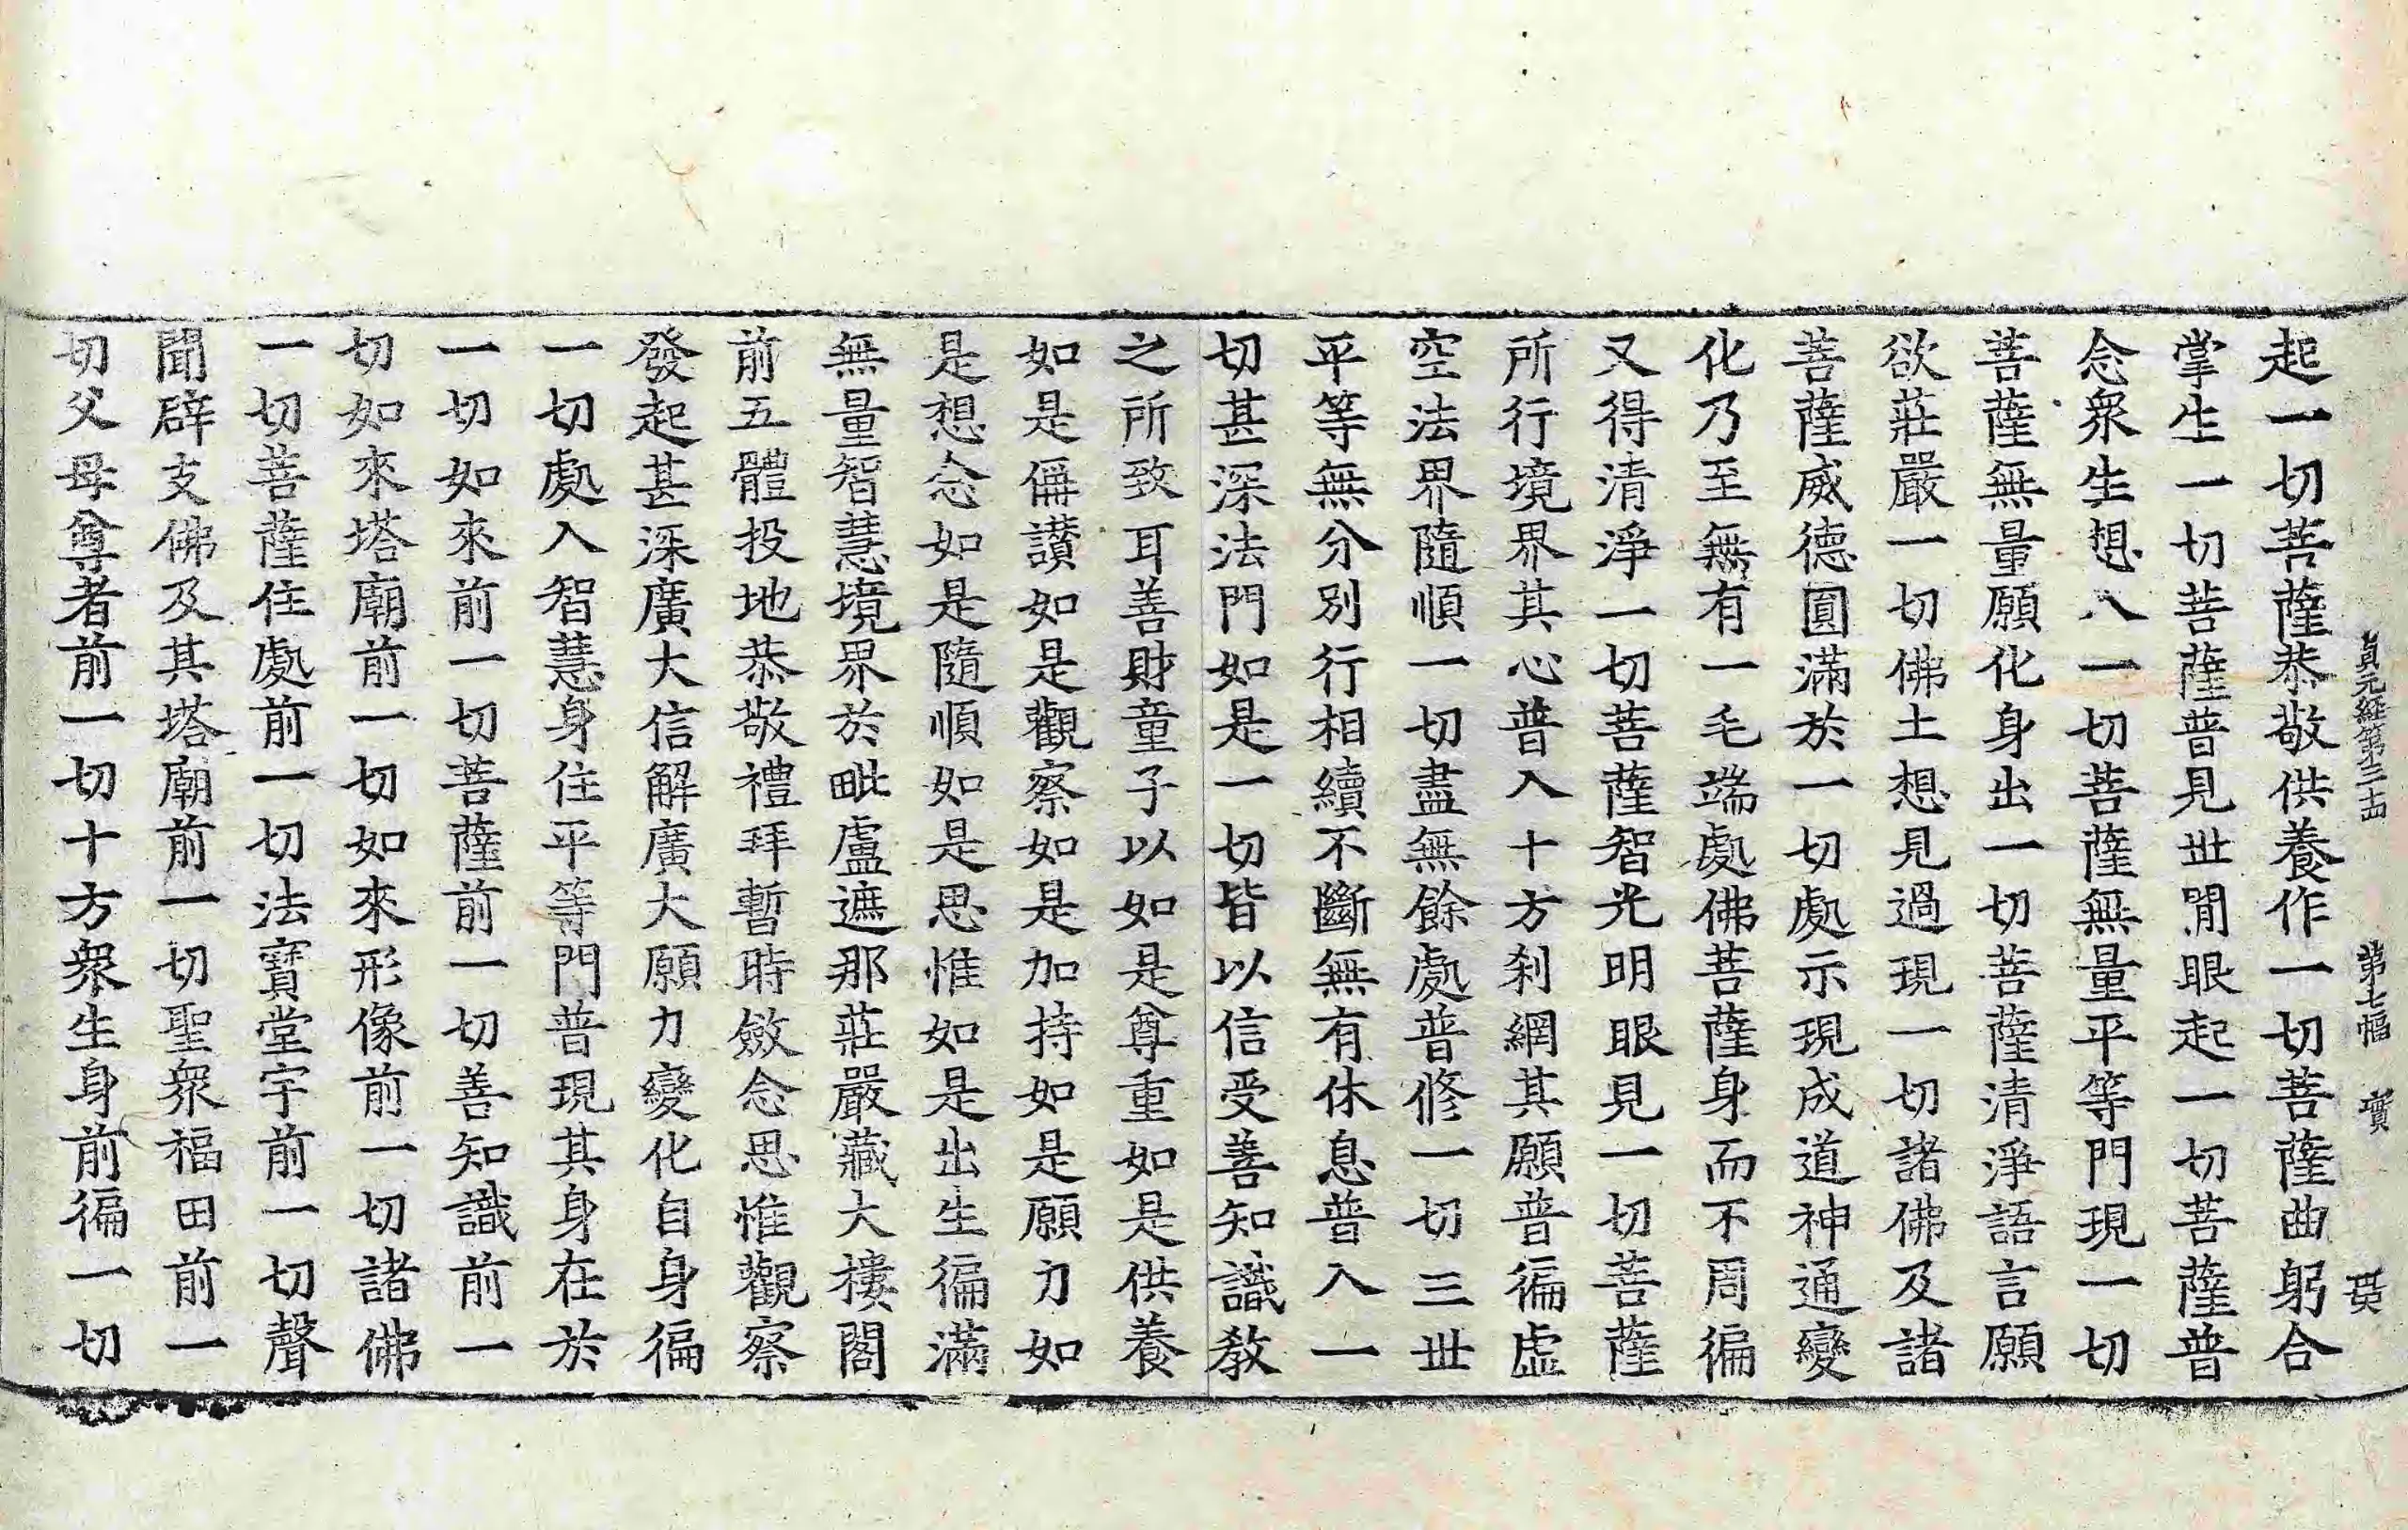 貞元経第三十四 第七幅 實
起一切菩薩恭敬供養作一切菩薩曲躬合
掌生一切菩薩普見世閒眼起一切菩薩普
念衆生想入一切菩薩無量平等門現一切
菩薩無量願化身出一切菩薩清淨語言願
欲莊嚴一切佛土想見過現一切諸佛及諸
菩薩威德圓滿於一切處示現成道神通變
化乃至無有一毛端處佛菩薩身而不周徧
又得清淨一切菩薩智光明眼見一切菩薩
所行境界其心普入十方刹網其願普徧虛
空法界隨順一切盡無餘處普修一切三世
平等無分別行相續不斷無有休息普入一
切甚深法門如是一切皆以信受善知識教
之所致耳善財童子以如是尊重如是供養
如是偁讃如是觀察如是加持如是願力如
是想念如是隨順如是思惟如是出生徧滿
無量智慧境界於毗盧遮那莊嚴藏大樓閣
前五體投地恭敬禮拜暫時斂念思惟觀察
發起甚深廣大信解廣大願力變化自身徧
一切處入智慧身住平等門普現其身在於
一切如來前一切菩薩前一切善知識前一
切如來塔廟前一切如來形像前一切諸佛
一切菩薩住處前一切法寶堂宇前一切聲
聞辟支佛及其塔廟前一切聖衆福田前一
切父母尊者前一切十方衆生身前徧一切